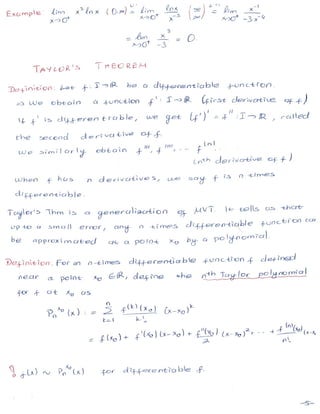 Example: lim x³ ln x (0·∞) = lim ln x / x⁻³ (∞/∞) = lim x⁻¹ / -3x⁻⁴
x→0⁺ x→0⁺ x→0⁺
= lim x³ / -3 = 0
x→0⁺
TAYLOR'S THEOREM
Definition: Let f: I→ℝ be a differentiable function.
→ We obtain a function f': I→ℝ (first derivative of f)
If f' is differentiable, we get (f')' = f'': I→ℝ, called
the second derivative of f.
We similarly obtain f''', f'''', ... f⁽ⁿ⁾
(nth derivative of f)
When f has n derivatives, we say f is n-times
differentiable.
Taylor's Thm is a generalisation of MVT. It tells us that
up to a small error, any n times differentiable function can
be approximated at a point x₀ by a polynomial.
Definition: For an n-times differentiable function f defined
near a point x₀ ∈ ℝ, define the nth Taylor polynomial
for f at x₀ as
Pₙˣ⁰(x) := Σ f⁽ᵏ⁾(x₀) / k! (x-x₀)ᵏ
= f(x₀) + f'(x₀)(x-x₀) + f''(x₀)/2 (x-x₀)² + ... + f⁽ⁿ⁾(x₀)/n! (x-x₀
f(x) ~ Pₙˣ⁰(x) for differentiable f.
-5-